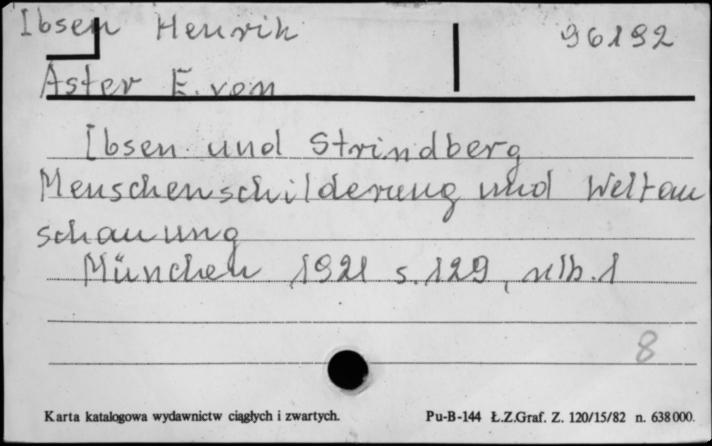 Ibsen Henrik 96192
Aster E. von
Ibsen und Strindberg
Menschenschilderung und Weltan
schauung
München 1921 s. 129, nlb. 1
8
Karta katalogowa wydawnictw ciągłych i zwartych. Pu-B-144 Ł.Z.Graf. Z. 120/15/82 n. 638000.